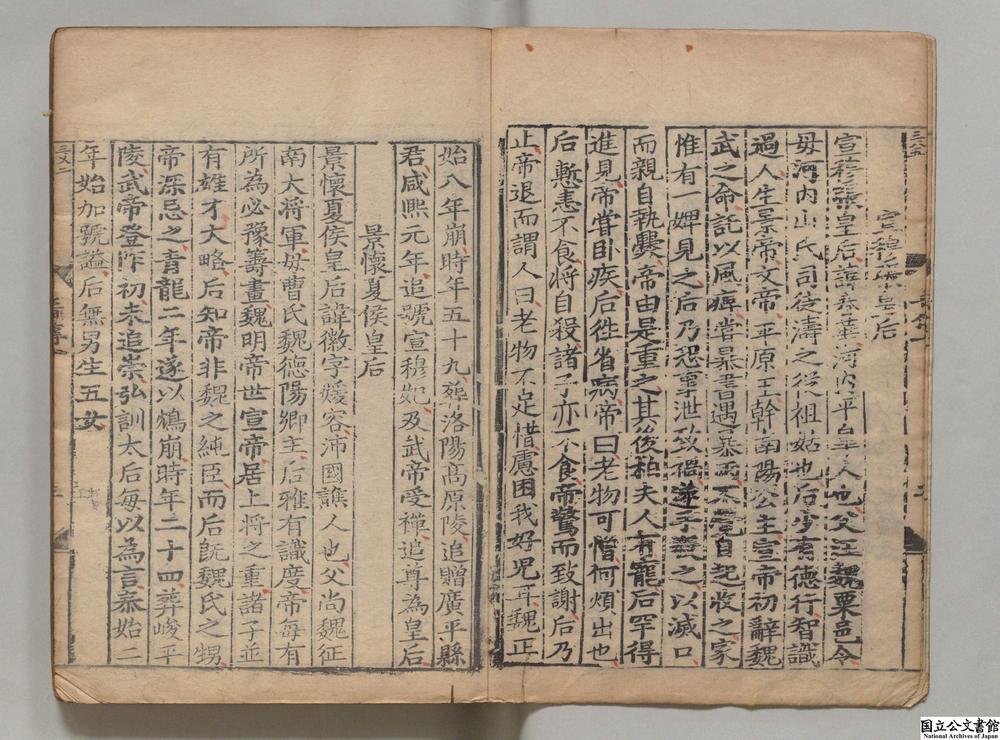 宣穆張皇后
宣穆張皇后諱春華河內平皋人也父汪魏粟邑令
母河內山氏司徒濤之從祖姑也后少有德行智識
過人生景帝文帝平原王幹南陽公主宣帝初辭魏
武之命託以風痺嘗暴書遇暴雨不覺自起收之家
惟有一婢見之后乃恐事泄致禍遂手殺之以滅口
而親自執爨帝由是重之其後柏夫人有寵后罕得
進見帝嘗臥疾后徃省病帝曰老物可憎何煩出也
后慙恚不食將自殺諸子亦不食帝驚而致謝后乃
止帝退而謂人曰老物不足惜慮困我好児耳魏正
始八年崩時年五十九葬洛陽高原陵追贈廣平縣
君咸熙元年追號宣穆妃及武帝受禪追尊為皇后
景懷夏侯皇后
景懷夏侯皇后諱徽字媛容沛國譙人也父尚魏征
南大將軍母曹氏魏德陽郷主后雅有識度帝每有
所為必豫籌畫魏明帝世宣帝居上將之重諸子並
有雄才大略后知帝非魏之純臣而后旣魏氏之甥
帝深忌之青龍二年遂以鴆崩時年二十四葬峻平
陵武帝登阼初未追崇弘訓太后每以為言泰始二
年始加號謚后無男生五女
国立公文書館
National Archives of Japan